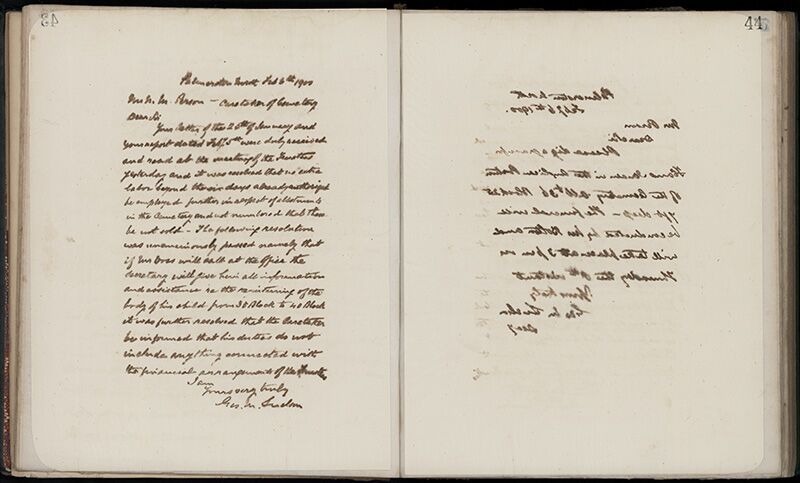 43
Palmerston North Feb 6th 1900
Mr N. M. Person – Caretaker of Cemetery
Dear Sir
Your letter of the 25th of January and
your report dated Feby 5th were duly received
and read at the meeting of the Trustees
yesterday and it was resolved that no extra
labor beyond the six days already authorized
be employed further in respect of allotments
in the Cemetery and not numbered that these
be not sold – The following resolution
was unanimously passed namely that
if Mr will call at the Office the
Secretary will give him all information
and assistance re the reinterring of the
body of his child from 35 Block to 40 Block
it was further resolved that the Caretaker
be informed that his duties do not
include anything connected with
the financial arrangements of the Trustees
I am
Yours very truly
Geo. M.
44
Palmerston North
Feby 6th 1900
Mr Person
Dear Sir
Please dig a grave
in the English
of the Cemetery
deep – The funeral will
be conducted by Mr and
will take place at 3 pm on
Thursday the 8th instant
Yours truly
Geo M.
Secy